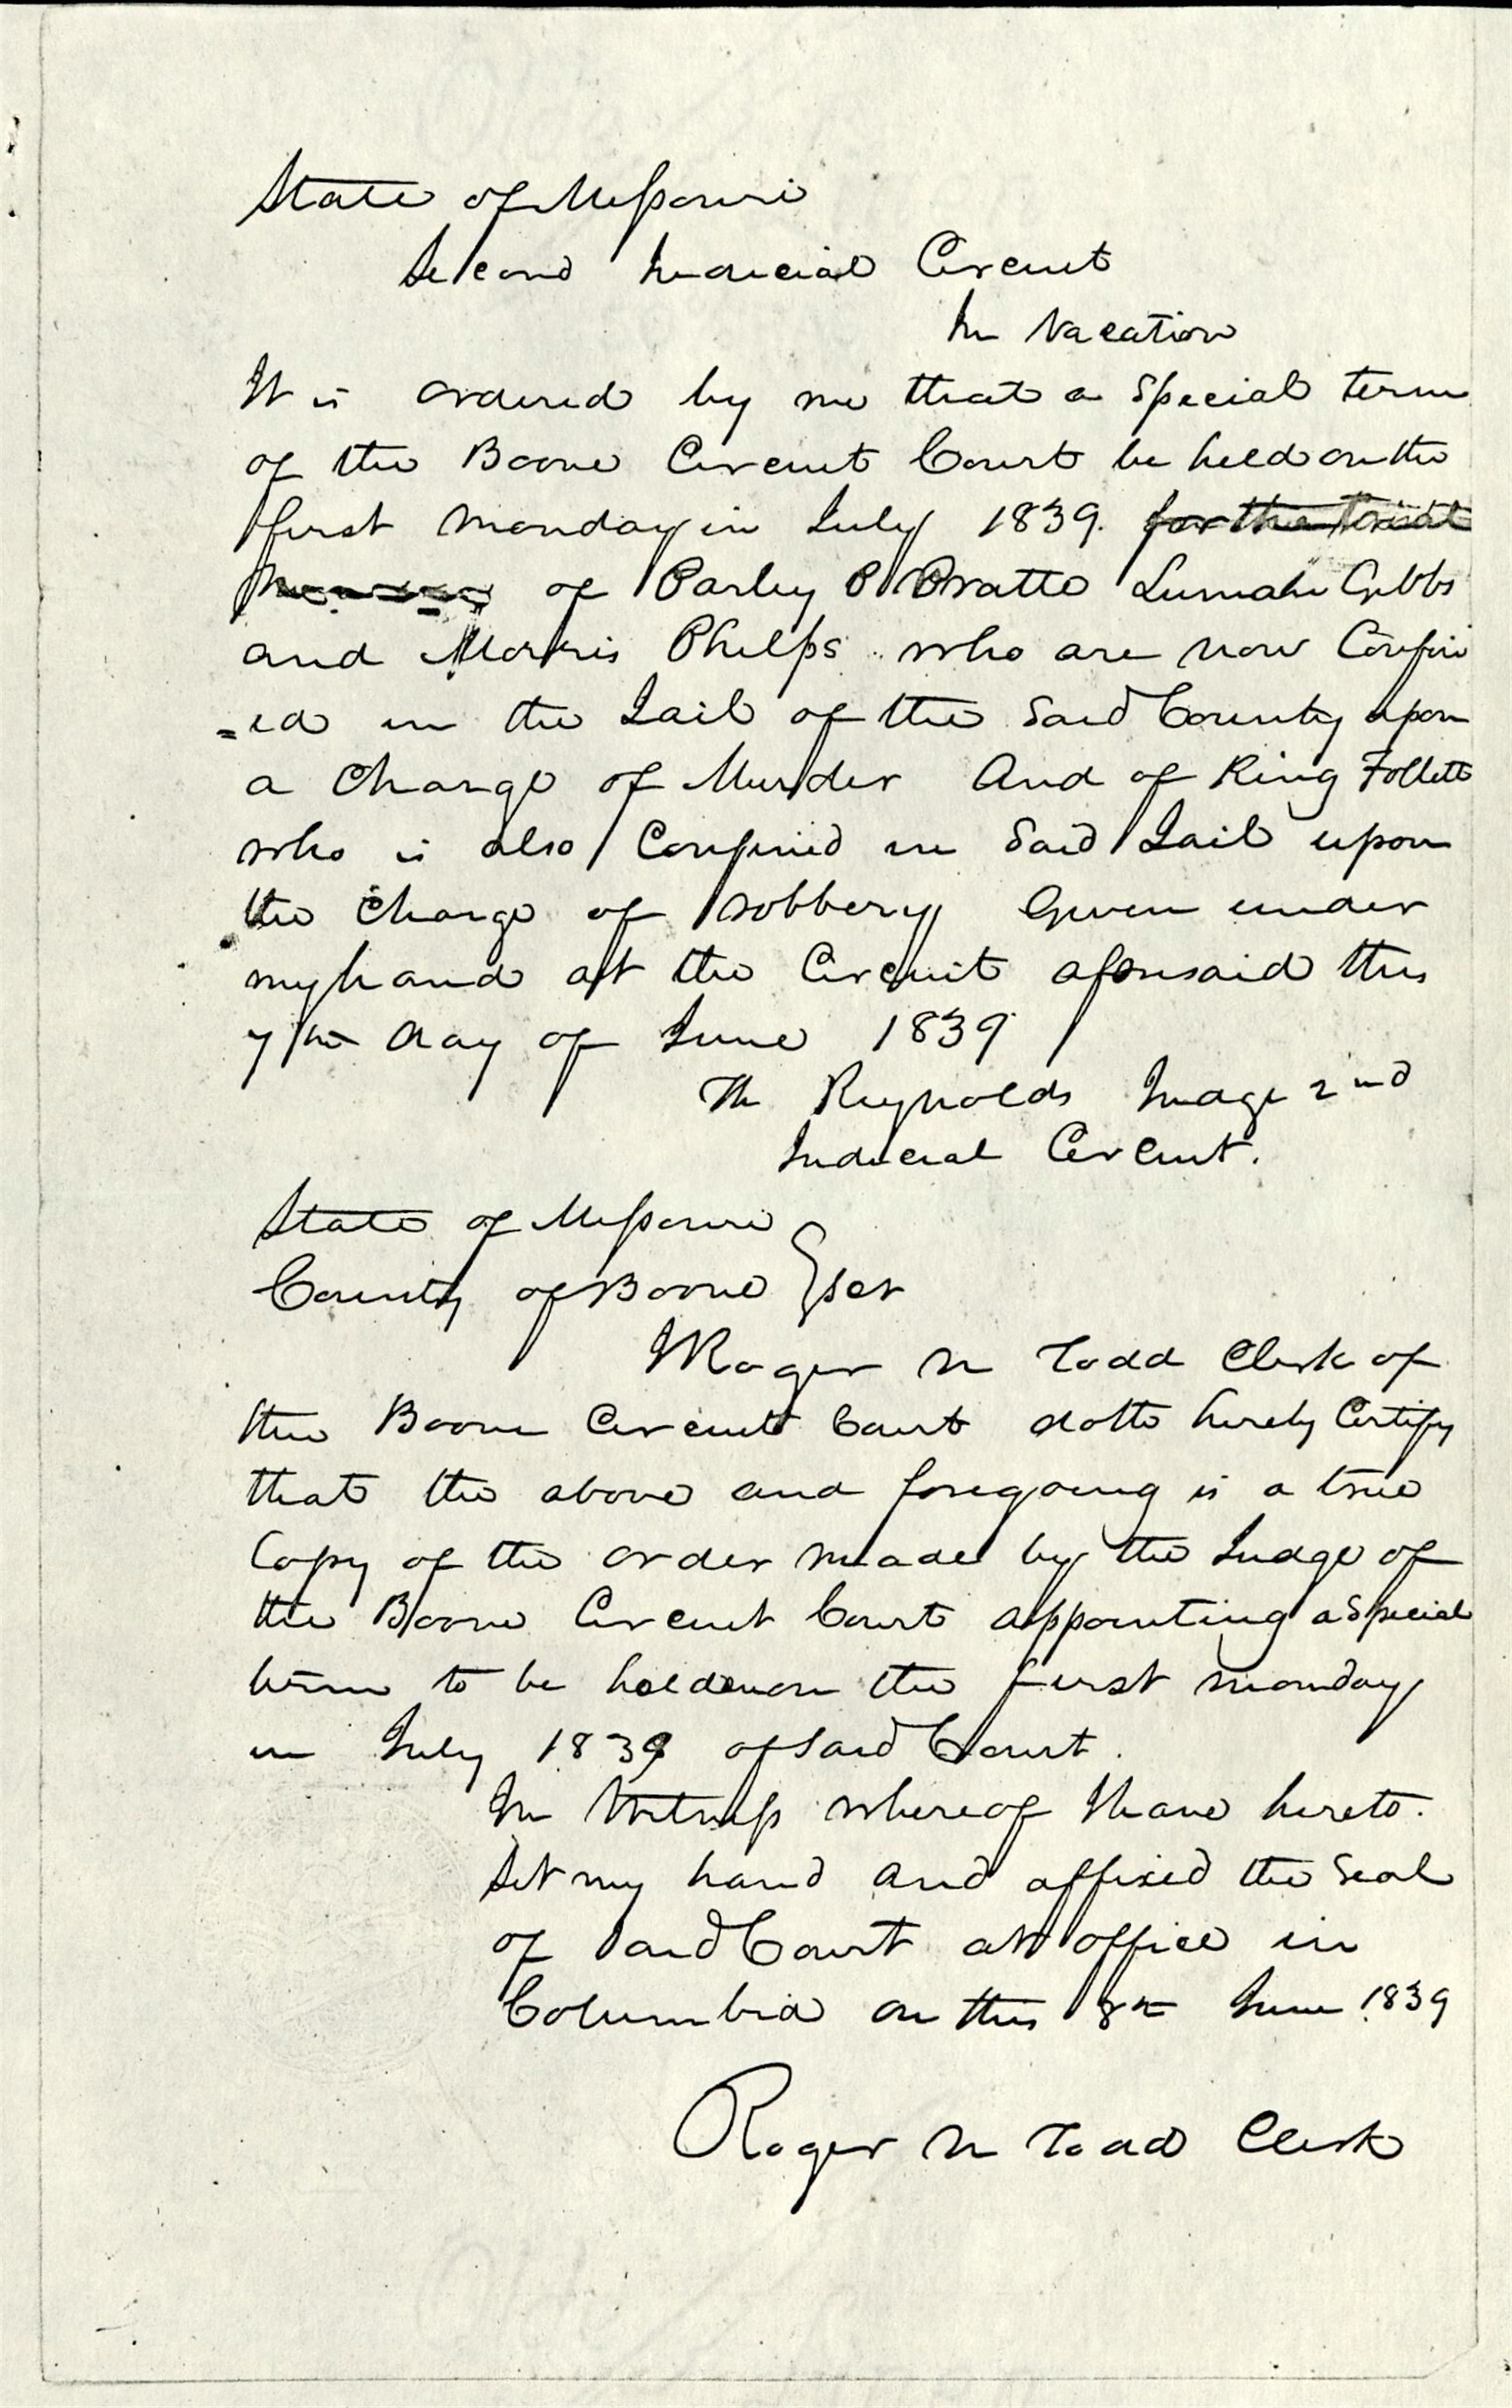 State of Missouri
Second Judicial Circuit
In Vacation
It is ordered by me that a Special term
of the Boone Circuit Court be held on the
first monday in July 1839. for the trial
of Parley P Pratt Luman Gibbs
and Morris Phelps who are now Confin
=ed in the Jail of the Said County upon
a Charge of Murder And of King Follett
who is also Confined in Said Jail upon
the Charge of robbery Given under
my hand at the Circuit aforesaid this
7th day of June 1839
Th Reynolds Judge 2nd
Judicial Circuit.
State of Missouri
County of Boone } Sct
I Roger N Todd Clerk of
the Boone Circuit Court doth hereby Certify
that the above and foregoing is a true
Copy of the order made by the Judge of
the Boone Circuit Court appointing a Special
term to be holden on the first monday
in July 1839 of Said Court.
In Witness whereof I have hereto.
Set my hand and affixed the Seal
of Said Court at office in
Columbia on this 8th June 1839
Roger N Todd Clerk